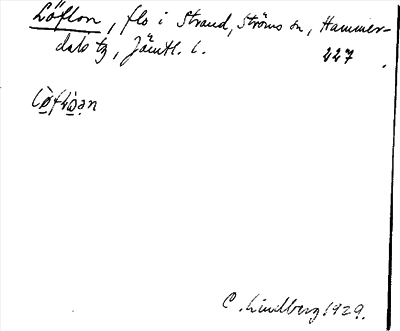 Löflon, flo i Strand, Ströms sn, Hammer-
dals tg, Jämtl. l.
227
C. Lindberg 1929.